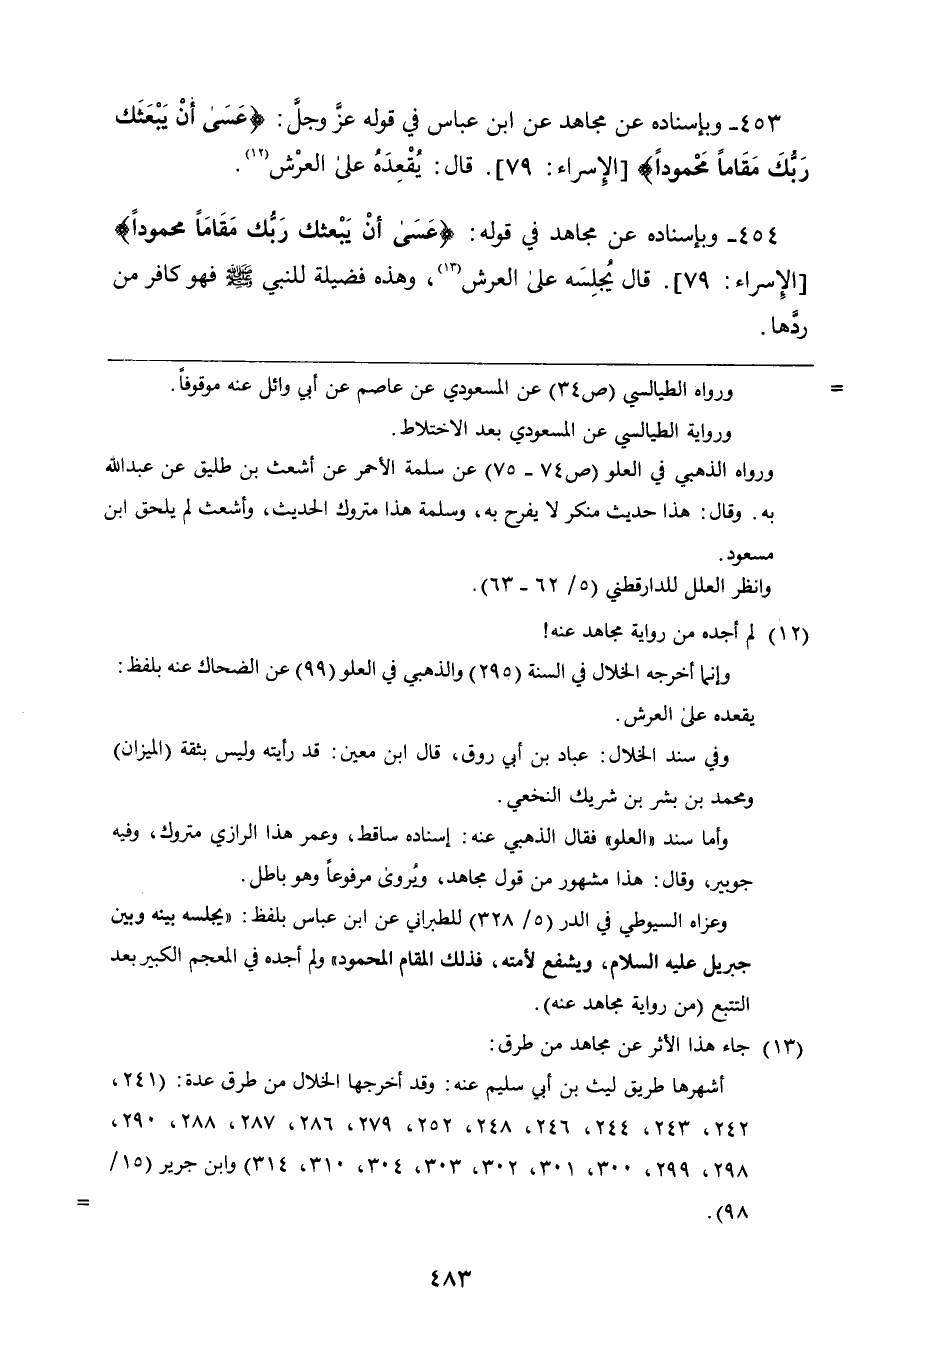 ٤٥٣ـ وبإسناده عن مجاهد عن ابن عباس في قوله عزَّ وجلَّ: ﴿عَسَىٰ أَنْ يَبْعَثَك
رَبُّكَ مَقَاماً مَحْموداً﴾ [الإسراء: ٧٩]. قال: يُقْعِدَهُ علىٰ العرْش(١٢).
٤٥٤ـ وبإسناده عن مجاهد في قوله: ﴿عَسَىٰ أنْ يَبْعثك رَبُّك مَقَامَاً محموداً﴾
[الإسراء: ٧٩]. قال يُجلِسَه علىٰ العرش(١٣)، وهذه فضيلة للنبي ﷺ فهو كافر من
ردَّها.
= ورواه الطيالسي (ص٣٤) عن المسعودي عن عاصم عن أبي وائل عنه موقوفاً.
ورواية الطيالسي عن المسعودي بعد الاختلاط.
ورواه الذهبي في العلو (ص٧٤ ـ ٧٥) عن سلمة الأحمر عن أشعث بن طليق عن عبدالله
به. وقال: هذا حديث منكر لا يفرح به، وسلمة هذا متروك الحديث، وأشعث لم يلحق ابن
مسعود.
وانظر العلل للدارقطني (٥/ ٦٢ ـ ٦٣).
(١٢) لم أجده من رواية مجاهد عنه!
وإنما أخرجه الخلال في السنة (٢٩٥) والذهبي في العلو (٩٩) عن الضحاك عنه بلفظ:
يقعده علىٰ العرش.
وفي سند الخلال: عباد بن أبي روق، قال ابن معين: قد رأيته وليس بثقة (الميزان)
ومحمد بن بشر بن شريك النخعي.
وأما سند «العلو» فقال الذهبي عنه: إسناده ساقط، وعمر هذا الرازي متروك، وفيه
جويبر، وقال: هذا مشهور من قول مجاهد، ويُروىٰ مرفوعاً وهو باطل.
وعزاه السيوطي في الدر (٥/ ٣٢٨) للطبراني عن ابن عباس بلفظ: «يجلسه بينه وبين
جبريل عليه السلام، ويشفع لأمته، فذلك المقام المحمود» ولم أجده في المعجم الكبير بعد
التتبع (من رواية مجاهد عنه).
(١٣) جاء هذا الأثر عن مجاهد من طرق:
أشهرها طريق ليث بن أبي سليم عنه: وقد أخرجها الخلال من طرق عدة: (٢٤١،
٢٤٢، ٢٤٣، ٢٤٤، ٢٤٦، ٢٤٨، ٢٥٢، ٢٧٩، ٢٨٦، ٢٨٧، ٢٨٨، ٢٩٠،
٢٩٨، ٢٩٩، ٣٠٠، ٣٠١، ٣٠٢، ٣٠٣، ٣٠٤، ٣١٠، ٣١٤) وابن جرير (١٥/
٩٨). =
٤٨٣